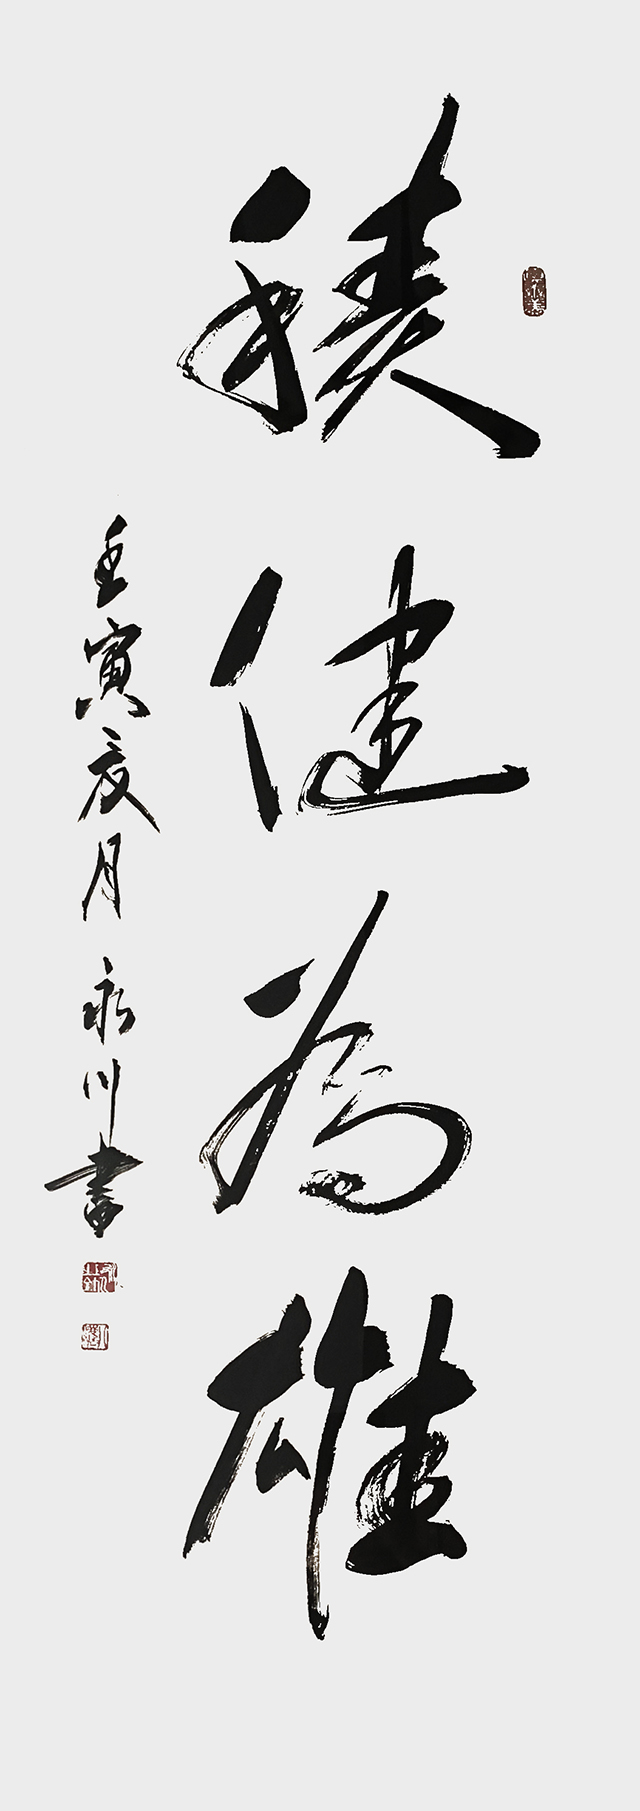 積健為雄
壬寅辰月永川書